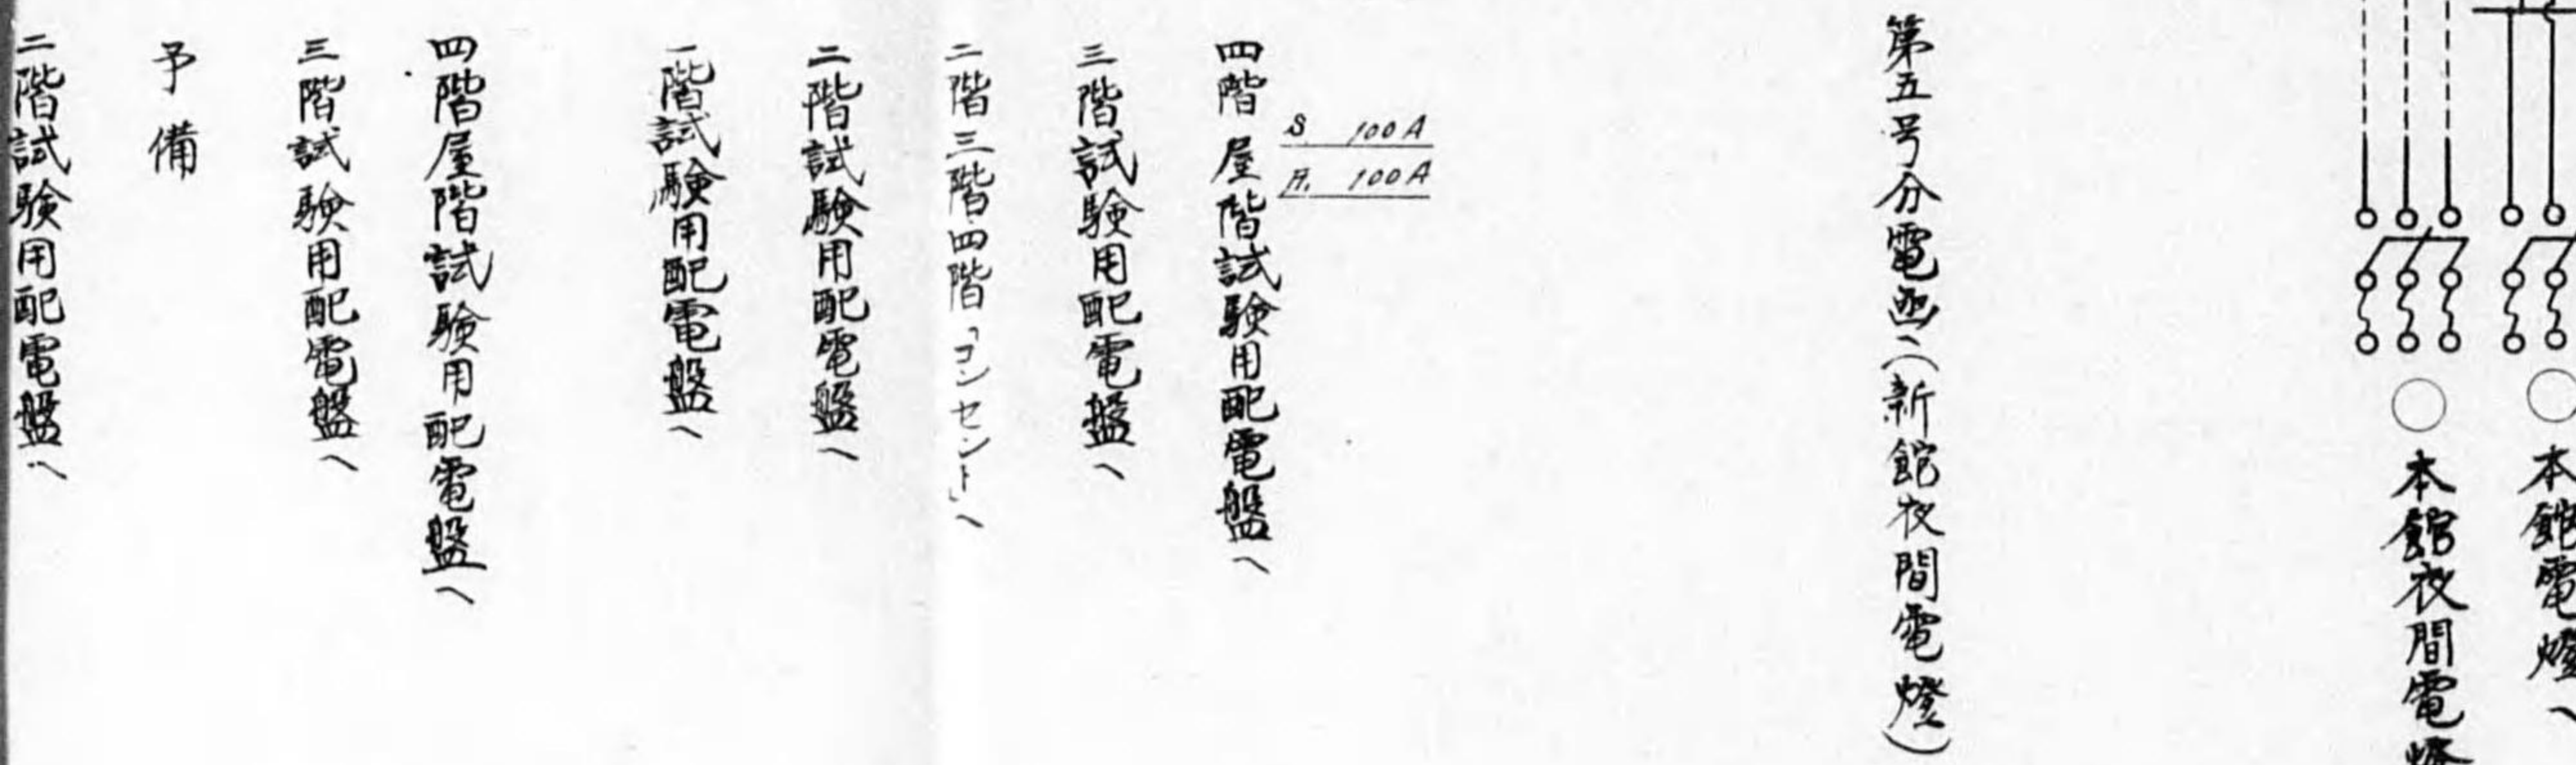 本館電燈へ
本館夜間電燈
第五号分電函へ(新館夜間電燈)
S 100A
A. 100A
四階屋階試験用配電盤へ
三階試験用配電盤へ
二階三階四階「コンセント」へ
二階試験用配電盤へ
一階試験用配電盤へ
四階屋階試験用配電盤へ
三階試験用配電盤へ
予備
二階試験用配電盤へ